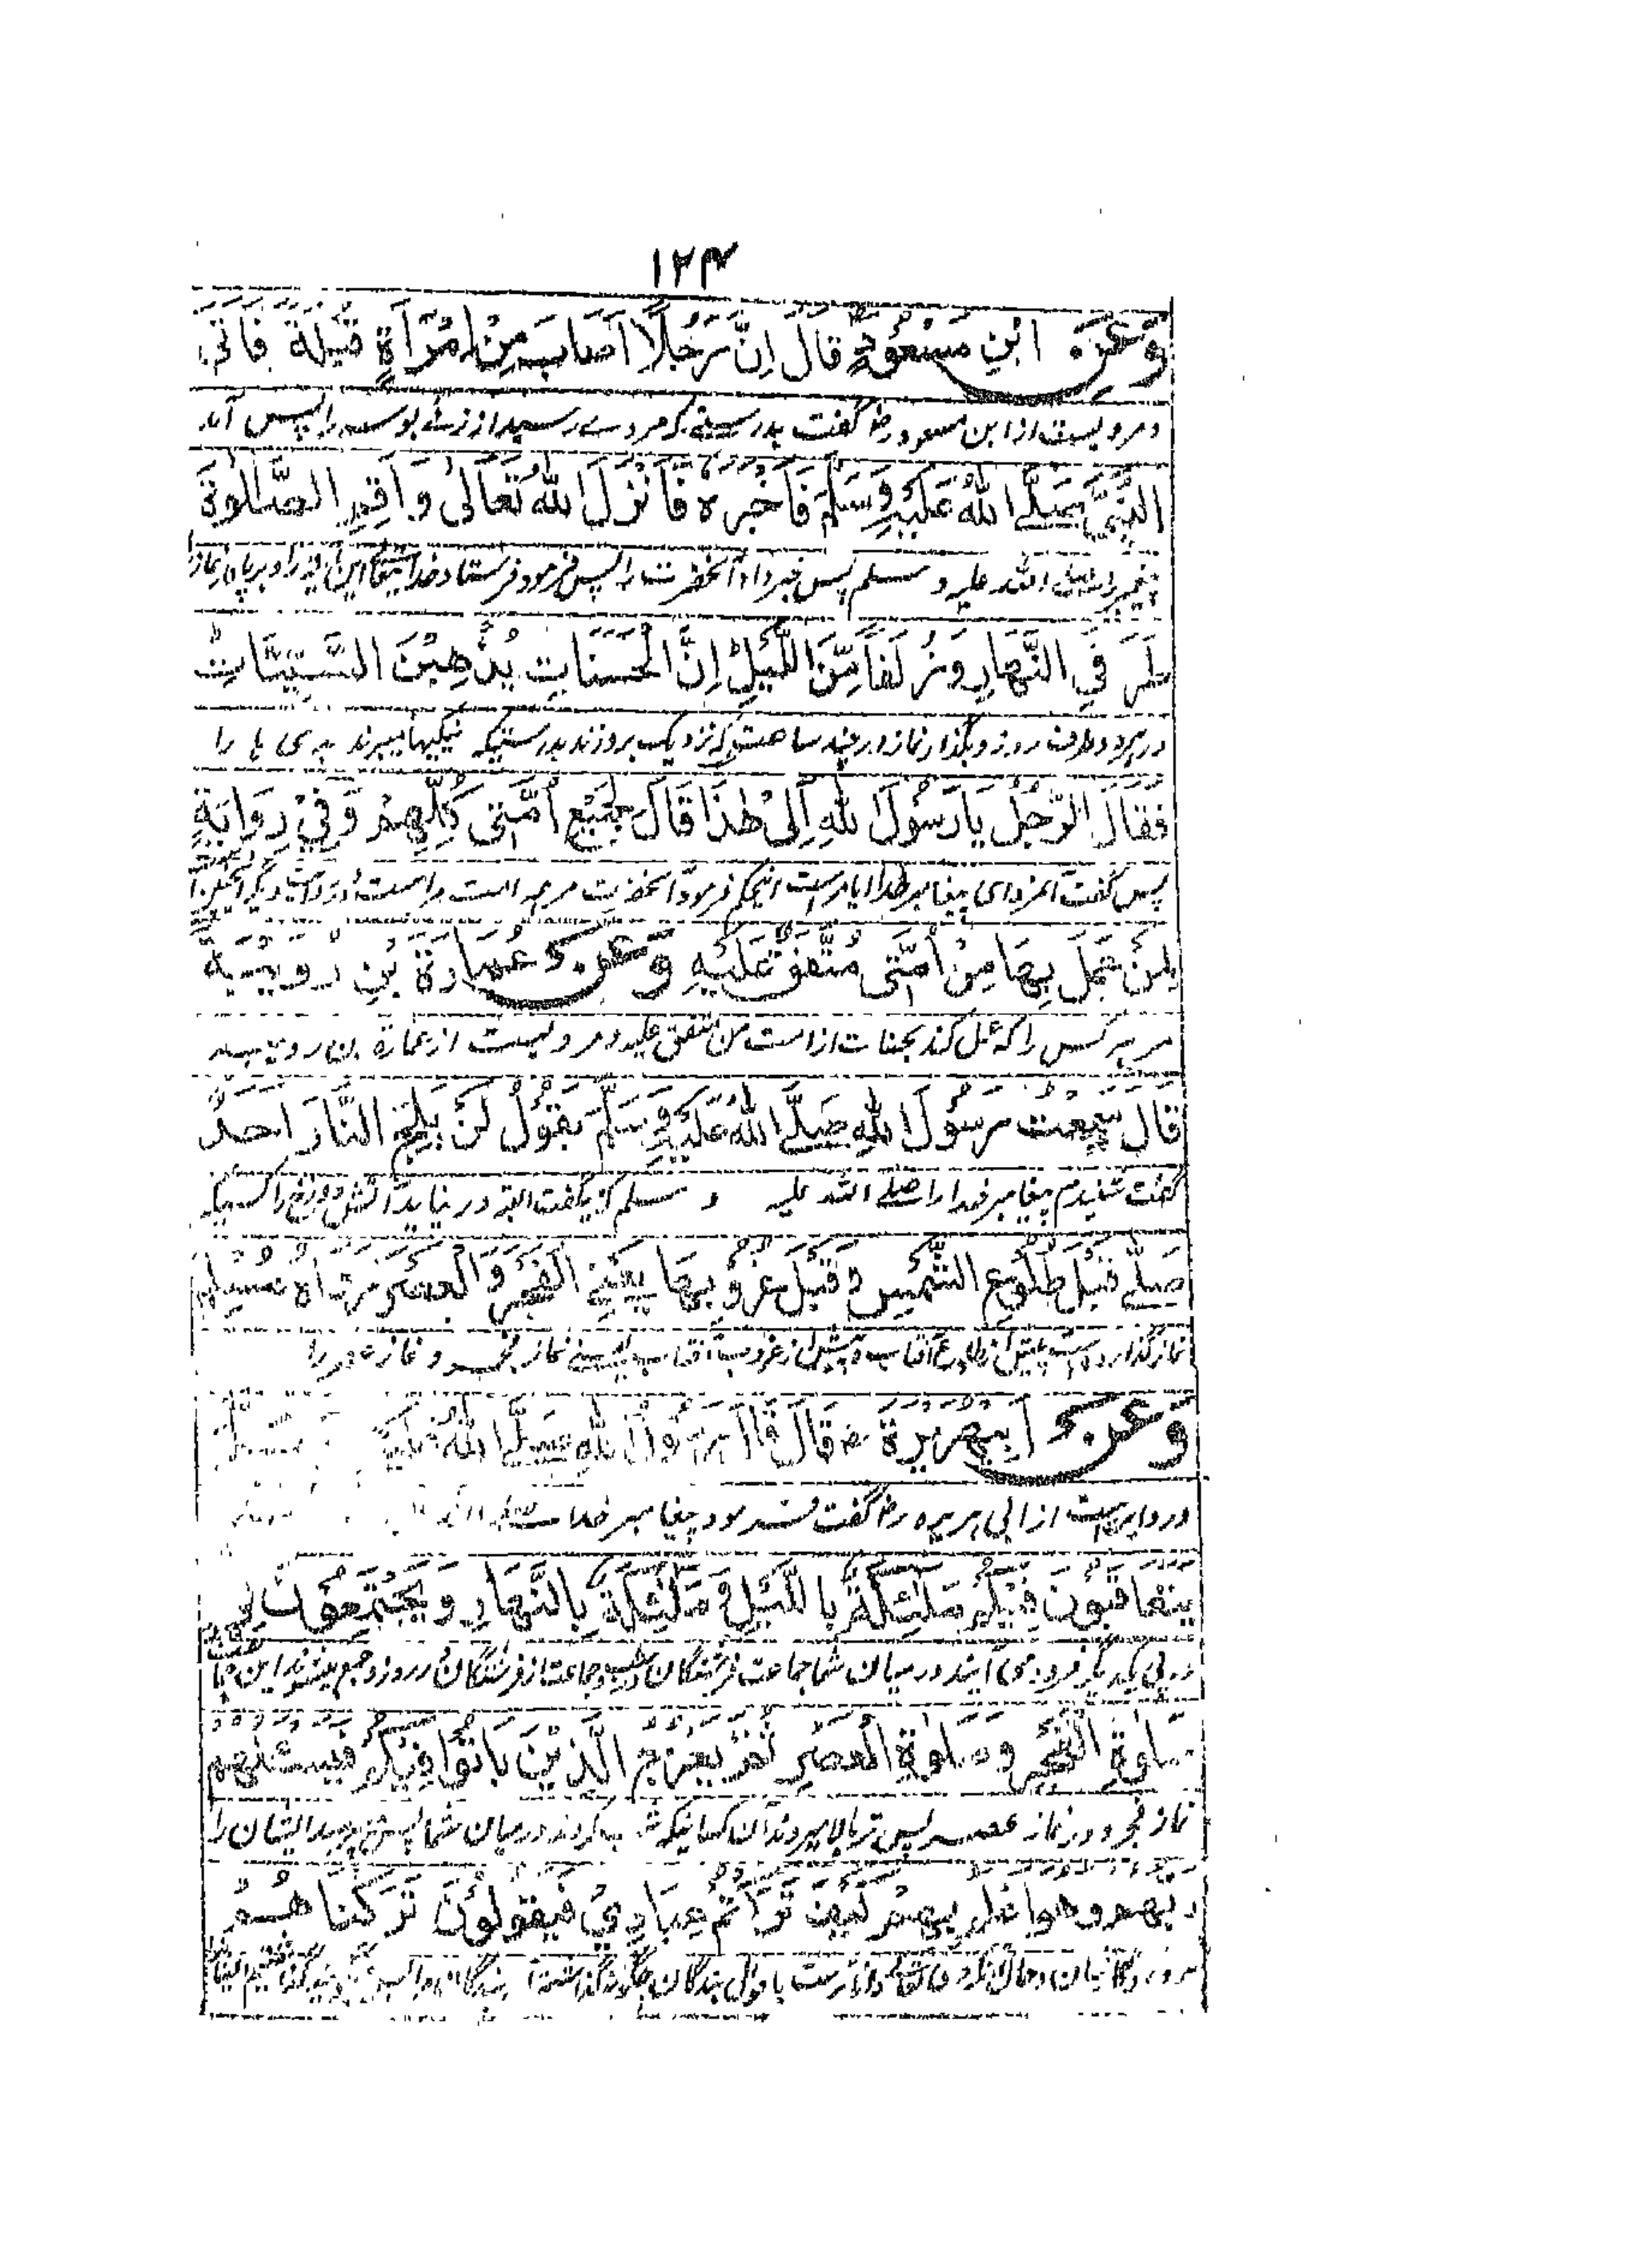 ۱۲۴
وَعَنِ ابْنِ مَسْعُودٍ قَالَ اِنَّ رَجُلًا اَصَابَ مِنْ اِمْرَاَةٍ قُبْلَةً فَاَتَى
و مرویست از ابن مسعود رض گفت بدرستیکه مردے رسید از زنے بوسه را پس آمد
النَّبِيَّ صَلَّى اللهُ عَلَيْهِ وَسَلَّمَ فَاَخْبَرَهٗ فَاَنْزَلَ اللهُ تَعَالٰى وَاَقِمِ الصَّلٰوةَ
پیغمبر را صلے الله علیه و سلم پس خبر داد آنحضرت را پس فرو فرستاد خدا این
طَرَفَيِ النَّهَارِ وَزُلَفًا مِّنَ اللَّيْلِ اِنَّ الْحَسَنَاتِ يُذْهِبْنَ السَّيِّئَاتِ
در هر دو طرف روز و بگذار نماز در چند ساعت که نزدیک بروزند بدرستیکه نیکیها میبرند بدی ها را
فَقَالَ الرَّجُلُ يَا رَسُوْلَ اللهِ اَلِىْ هٰذَا قَالَ لِجَمِيْعِ اُمَّتِىْ كُلِّهِمْ وَفِىْ رِوَايَةٍ
پس گفت آنمرد ای پیغامبر خدا ایا مراست اینحکم فرمود آنحضرت مر همه امت مراست و در روایت دیگر
لِمَنْ عَمِلَ بِهَا مِنْ اُمَّتِىْ مُتَّفَقٌ عَلَيْهِ وَعَنْ عُمَارَةَ بْنِ رُوَيْبَةَ
مر هر کس را که عمل کند بحسنات از امت من متفق علیه و مرویست از عمارة بن رویبه
قَالَ سَمِعْتُ رَسُوْلَ اللهِ صَلَّى اللهُ عَلَيْهِ وَسَلَّمَ يَقُوْلُ لَنْ يَلِجَ النَّارَ اَحَدٌ
گفت شنیدم پیغامبر خدا را صلے الله علیه و سلم که میگفت البته در نیاید آتش دوزخ را کسیکه
صَلَّى قَبْلَ طُلُوْعِ الشَّمْسِ وَقَبْلَ غُرُوْبِهَا يَعْنِى الْفَجْرَ وَالْعَصْرَ رَوَاهُ مُسْلِمٌ
نماز گذارده است پیش از طلوع آفتاب و پیش از غروب آفتاب یعنے نماز فجر و نماز عصر را
وَعَنْ اَبِيْ هُرَيْرَةَ رض قَالَ قَالَ رَسُوْلُ اللهِ صَلَّى اللهُ عَلَيْهِ
و روایتست از ابی هریره رض گفت فرمود پیغامبر خدا
يَتَعَاقَبُوْنَ فِيْكُمْ مَلٰئِكَةٌ بِاللَّيْلِ وَمَلٰئِكَةٌ بِالنَّهَارِ وَيَجْتَمِعُوْنَ فِى
در پی یکدیگر فرود می آیند در میان شما جماعت فرشتگان و جماعت از فرشتگان در روز و جمع میشوند این
صَلٰوةِ الْفَجْرِ وَصَلٰوةِ الْعَصْرِ ثُمَّ يَعْرُجُ الَّذِيْنَ بَاتُوْا فِيْكُمْ فَيَسْئَلُهُمْ
نماز فجر و در نماز عصر پس تر بالا میروند آن کسانیکه شب کردند در میان شما پس میپرسد ایشان را
رَبُّهُمْ وَهُوَ اَعْلَمُ بِهِمْ كَيْفَ تَرَكْتُمْ عِبَادِىْ فَيَقُوْلُوْنَ تَرَكْنَا هُمْ